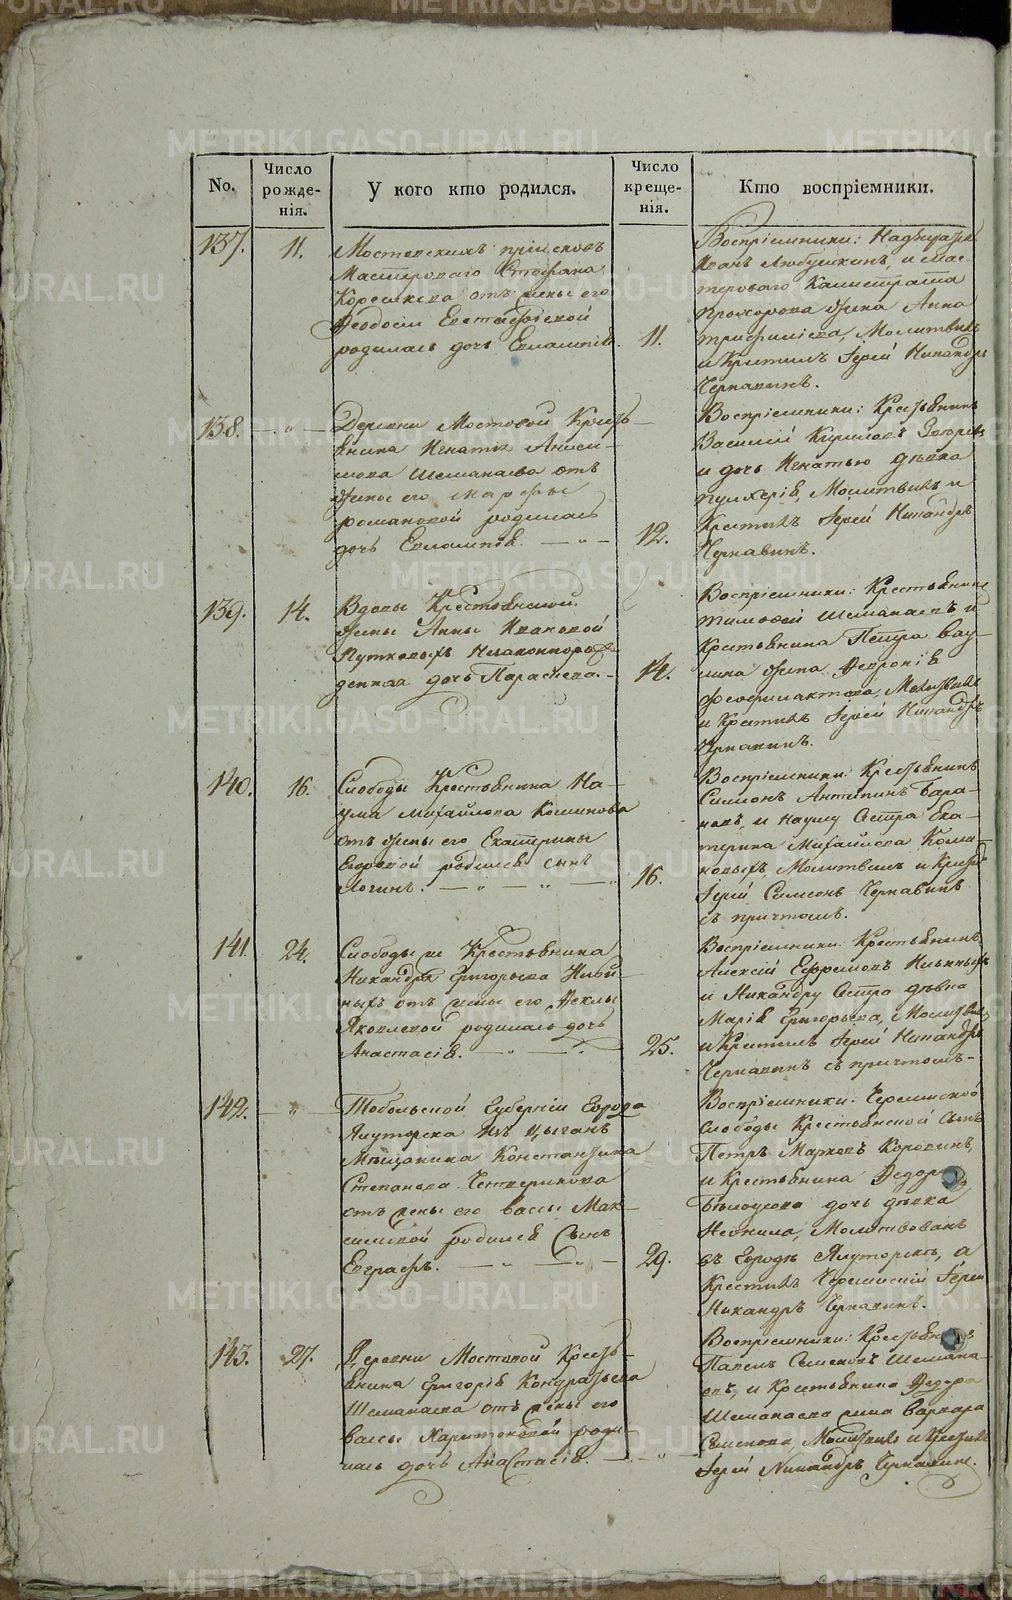 METRIKI.GASO-URAL.RU
No.
Число рожде-нія.
У кого кто родился.
Число креще-нія.
Кто воспріемники.
137.
11.
Мостовскихъ пріисковъ
Мастероваго Стефана
отъ жены его
Ѳеодосіи Евстафіевой
родилась дочь Евлампія.
11.
Воспріемники:
Иванъ Любушкинъ, и Мас-
тероваго Калистрата
Прохорова жена Анна
Трифилиева, Молитвилъ
и Крестилъ Іерей Никандръ
Чернавинъ.
138.
— „ —
Деревни Мостовой Кресть-
янина Игнатія Аниси-
мова Шеманаева отъ
жены его Марфы
Романовой родилась
дочь Евлампія. — „ —
12.
Воспріемники: Крестьянинъ
Василій Кириловъ
и дочь Игнатью дѣвка
Пулхерія, Молитвилъ и
Крестилъ Іерей Никандръ
Чернавинъ.
139.
14.
Вдовы Крестьянской
жены Анны Ивановой
Путковыхъ Незаконнорож-
денная дочь Параскева. —
14.
Воспріемники: Крестьянинъ
Тимофей Шеманаевъ и
Крестьянина Петра Вау-
лина жена Февронія
Феофилактова, Молитвилъ
и Крестилъ Іерей Никандръ
Чернавинъ.
140.
16.
Слободы Крестьянина На-
ума Михайлова Кошикова
отъ жены его Екатерины
родился сынъ
Логинъ. — „ — „ — „
16.
Воспріемники: Крестьянинъ
Симіонъ Антипинъ Бара-
новъ, и Науму Сестра Ека-
терина Михайлова Коши-
ковыхъ, Молитвилъ и Крестилъ
Іерей Симеонъ Чернавинъ
съ причтомъ.
141.
24.
Слободы ж Крестьянина
Никандра Григорьева
отъ жены его Ѳеклы
Яковлевой родилась дочь
Анастасія. — „ — „
25.
Воспріемники: Крестьянинъ
Алексій Ефремовъ
и Никандру Сестра дѣвка
Марія Григорьева, Молитвилъ
и Крестилъ Іерей Никандръ
Чернавинъ съ причтомъ —
142.
— „ —
Тобольской Губерніи Города
Ялуторска изъ Цыганъ
Мѣщанина Константина
Степанова Четверикова
отъ жены его Вассы Мак-
симовой родился Сынъ
Евграфъ. — „ — „ —
29.
Воспріемники:
Слободы Крестьянской Сынъ
Петръ Марковъ Коровинъ,
и Крестьянина Ѳедора
Бѣлоусова дочь дѣвка
Неонила, Молитвованъ
въ Городѣ Ялуторскѣ, а
Крестилъ Іерей
Никандръ Чернавинъ.
143.
27.
Деревни Мостовой Кресть-
янина Григорія Кондратьева
Шеманаева отъ жены его
Вассы Харитоновой роди-
лась дочь Анастасія. — „
Воспріемники: Крестьянинъ
Павелъ Семеновъ Шемана-
евъ, и Крестьянина Ѳедора
Шеманаева жена Варвара
Семенова, Молитвилъ и Крестилъ
Іерей Никандръ Чернавинъ.